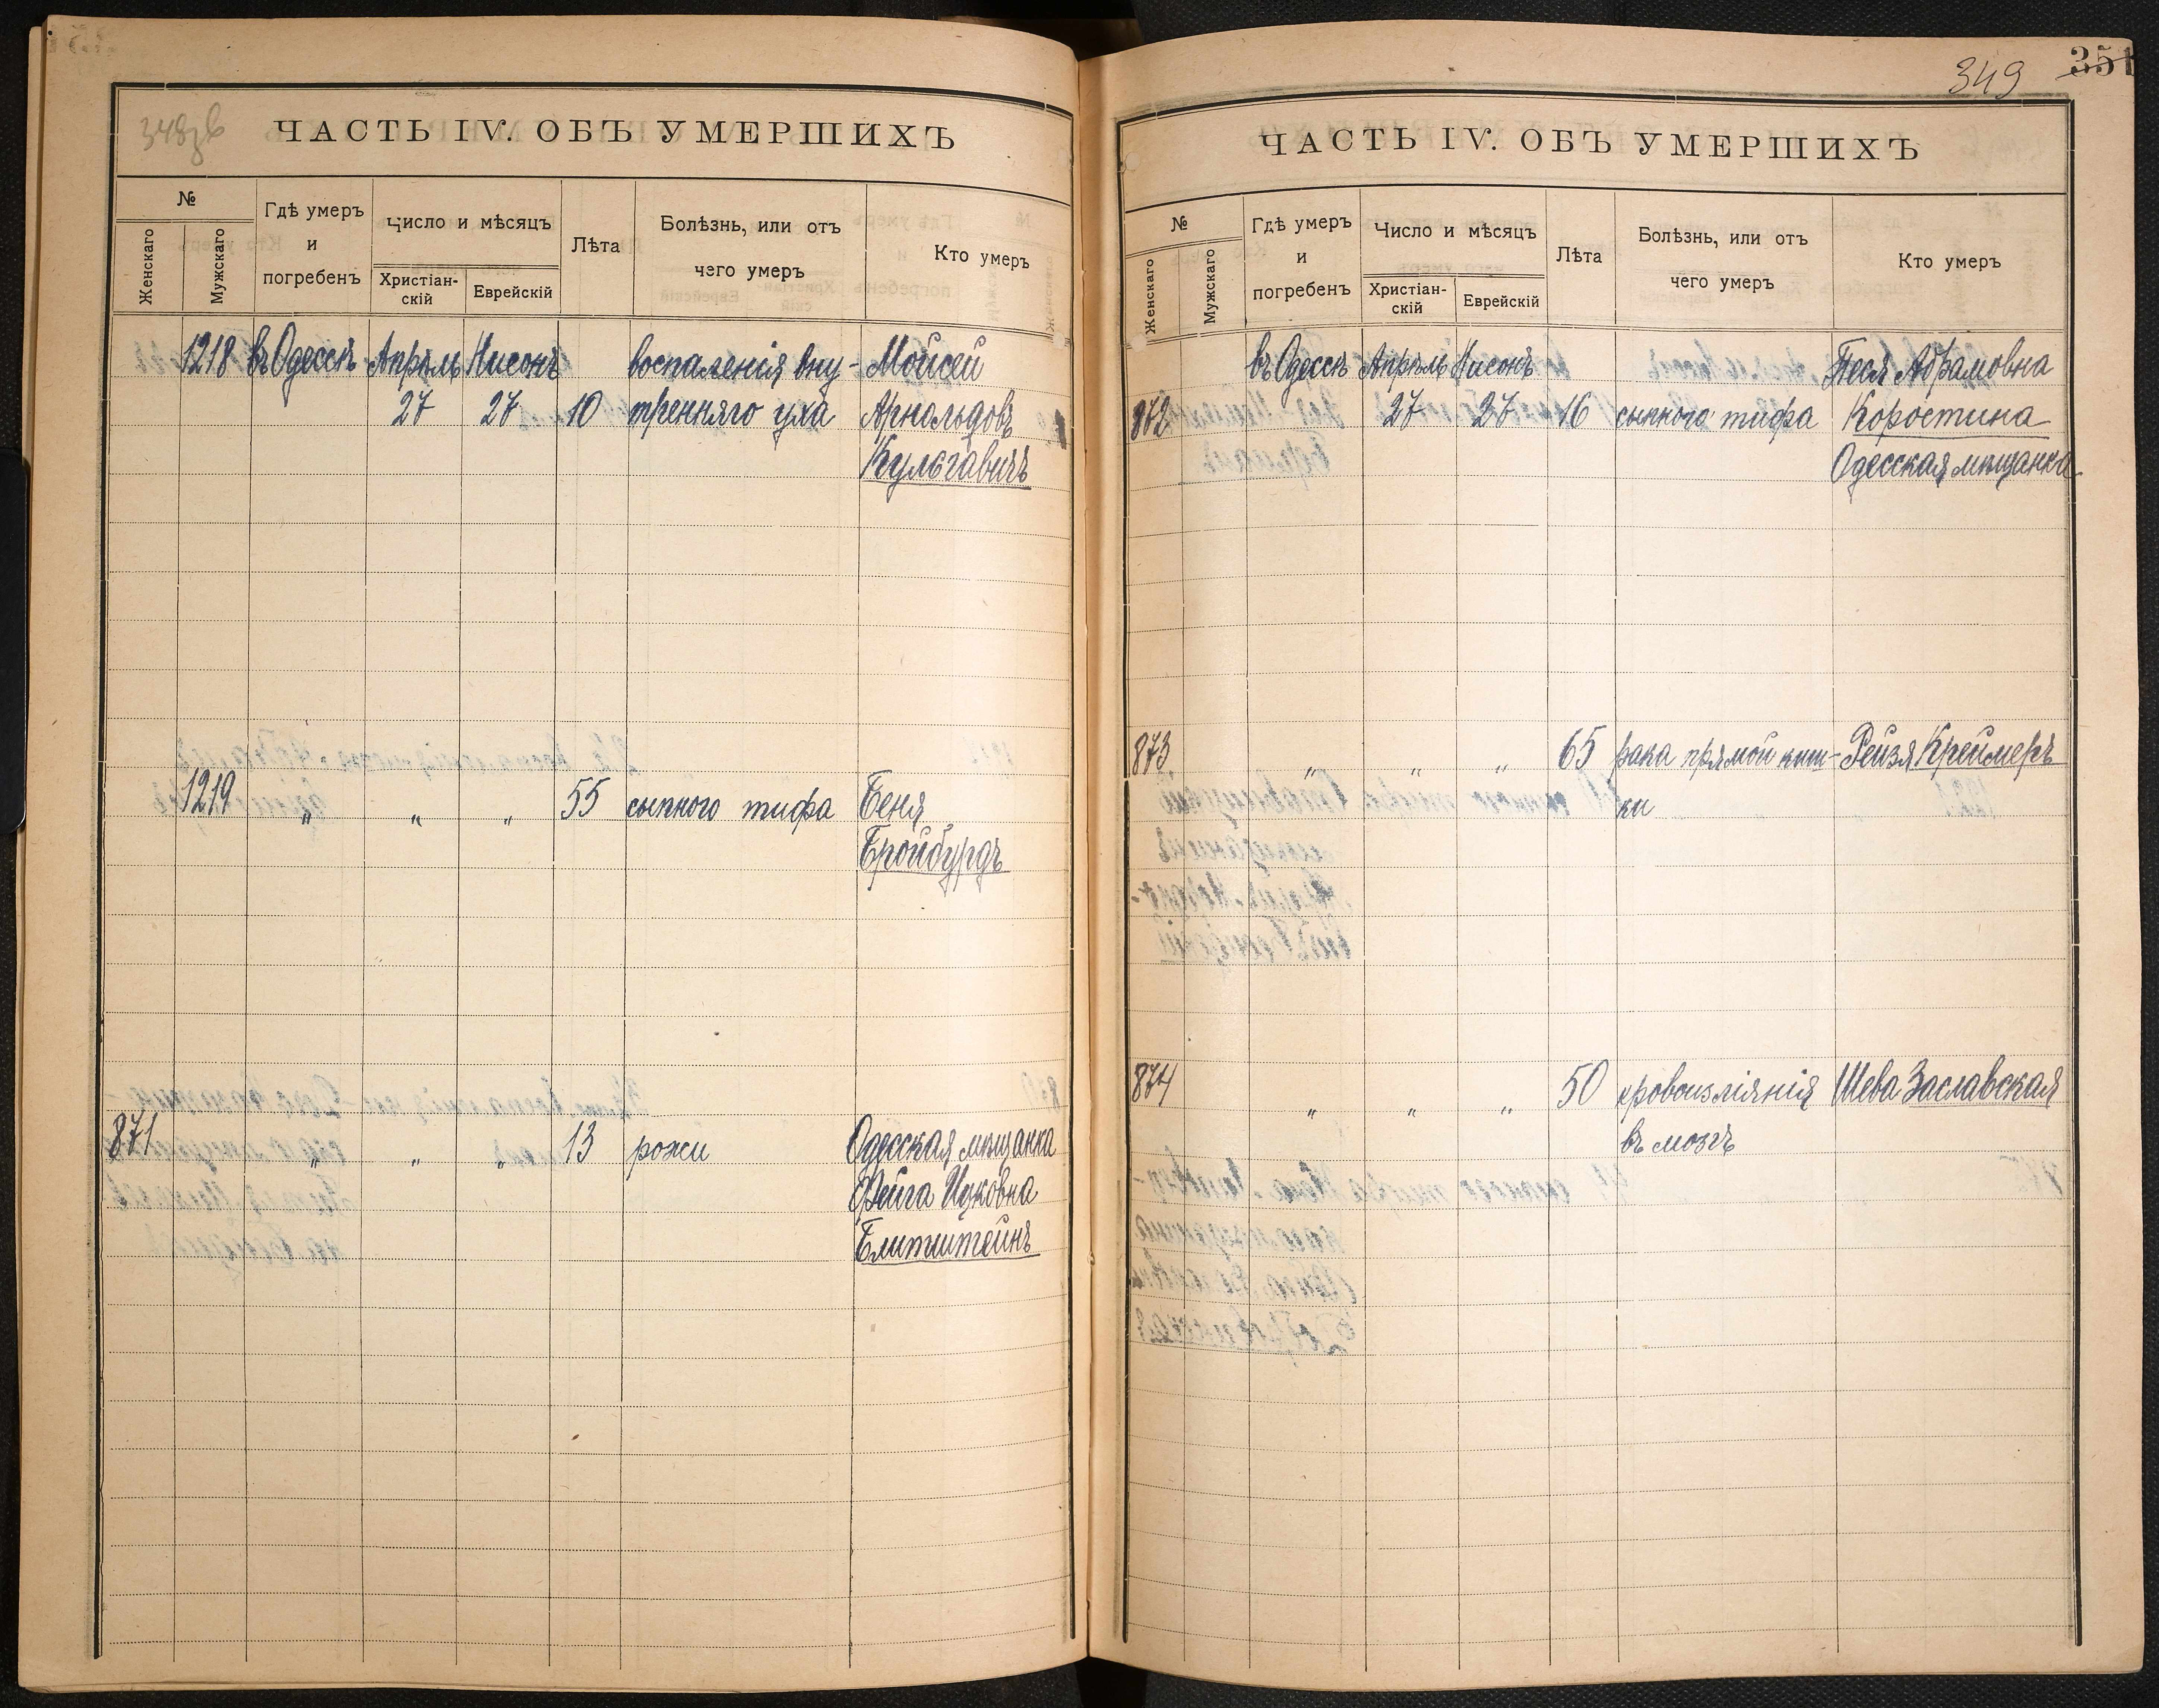 348зв
ЧАСТЬ IV. ОБЪ УМЕРШИХЪ
№
Женскаго
Мужскаго
Гдѣ умеръ
и
погребенъ
Число и мѣсяцъ
Христіан-
скій
Еврейскій
Лѣта
Болѣзнь, или отъ
чего умеръ
Кто умеръ
1218 въ Одессѣ Апрѣль Нисонъ воспаленія вну- Мойсей
27 27 10 тренняго уха Арнольдовъ
Кульгавичъ
1219 " " " 55 сыпного тифа Беня
Бройбурдъ
871 " " " 13 рожи Одесская мѣщанка
Фейга Ицковна
Блитштейнъ
349
351
ЧАСТЬ IV. ОБЪ УМЕРШИХЪ
№
Женскаго
Мужскаго
Гдѣ умеръ
и
погребенъ
Число и мѣсяцъ
Христіан-
скій
Еврейскій
Лѣта
Болѣзнь, или отъ
чего умеръ
Кто умеръ
въ Одессѣ Апрѣль Нисонъ Песя Абрамовна
872 27 27 16 сыпного тифа Коростина
Одесская мѣщанка
873 " " " 65 рака прямой киш- Рейзя Креймеръ
ки
874 " " " 50 кровоизліянія Шева Заславская
въ мозгъ